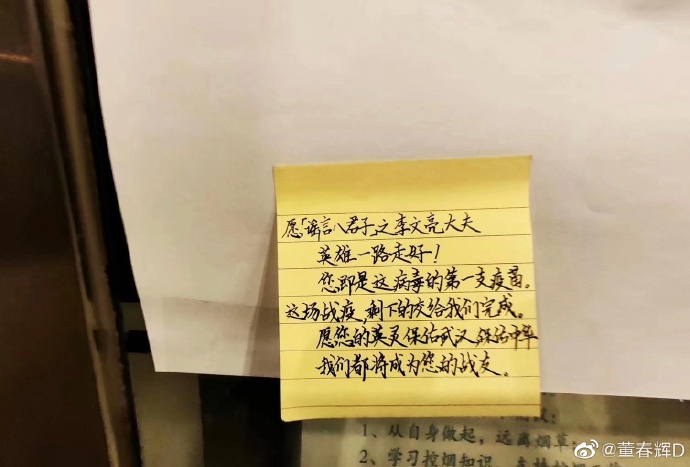 愿「谣言八君子」之李文亮大夫
英雄一路走好！
您即是这病毒的第一支疫苗。
这场战疫，剩下的交给我们完成。
愿您的英灵保佑武汉，保佑中华
我们都将成为您的战友。
1、从自身做起，远离烟草；
2、学习控烟知识，支持
@董春辉D